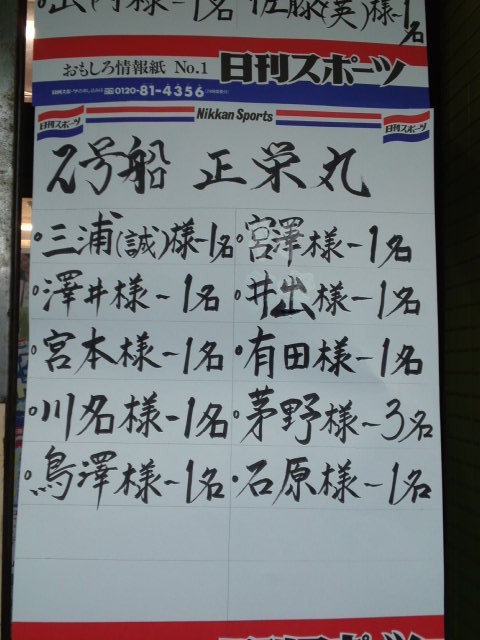 様-1名 佐藤(英)様-1名
おもしろ情報紙 No.1 日刊スポーツ
0120-81-4356
Nikkan Sports
日刊スポーツ 日刊スポーツ
2号船 正栄丸
三浦(誠)様-1名 宮澤様-1名
澤井様-1名 井出様-1名
宮本様-1名 有田様-1名
川名様-1名 茅野様-3名
鳥澤様-1名 石原様-1名